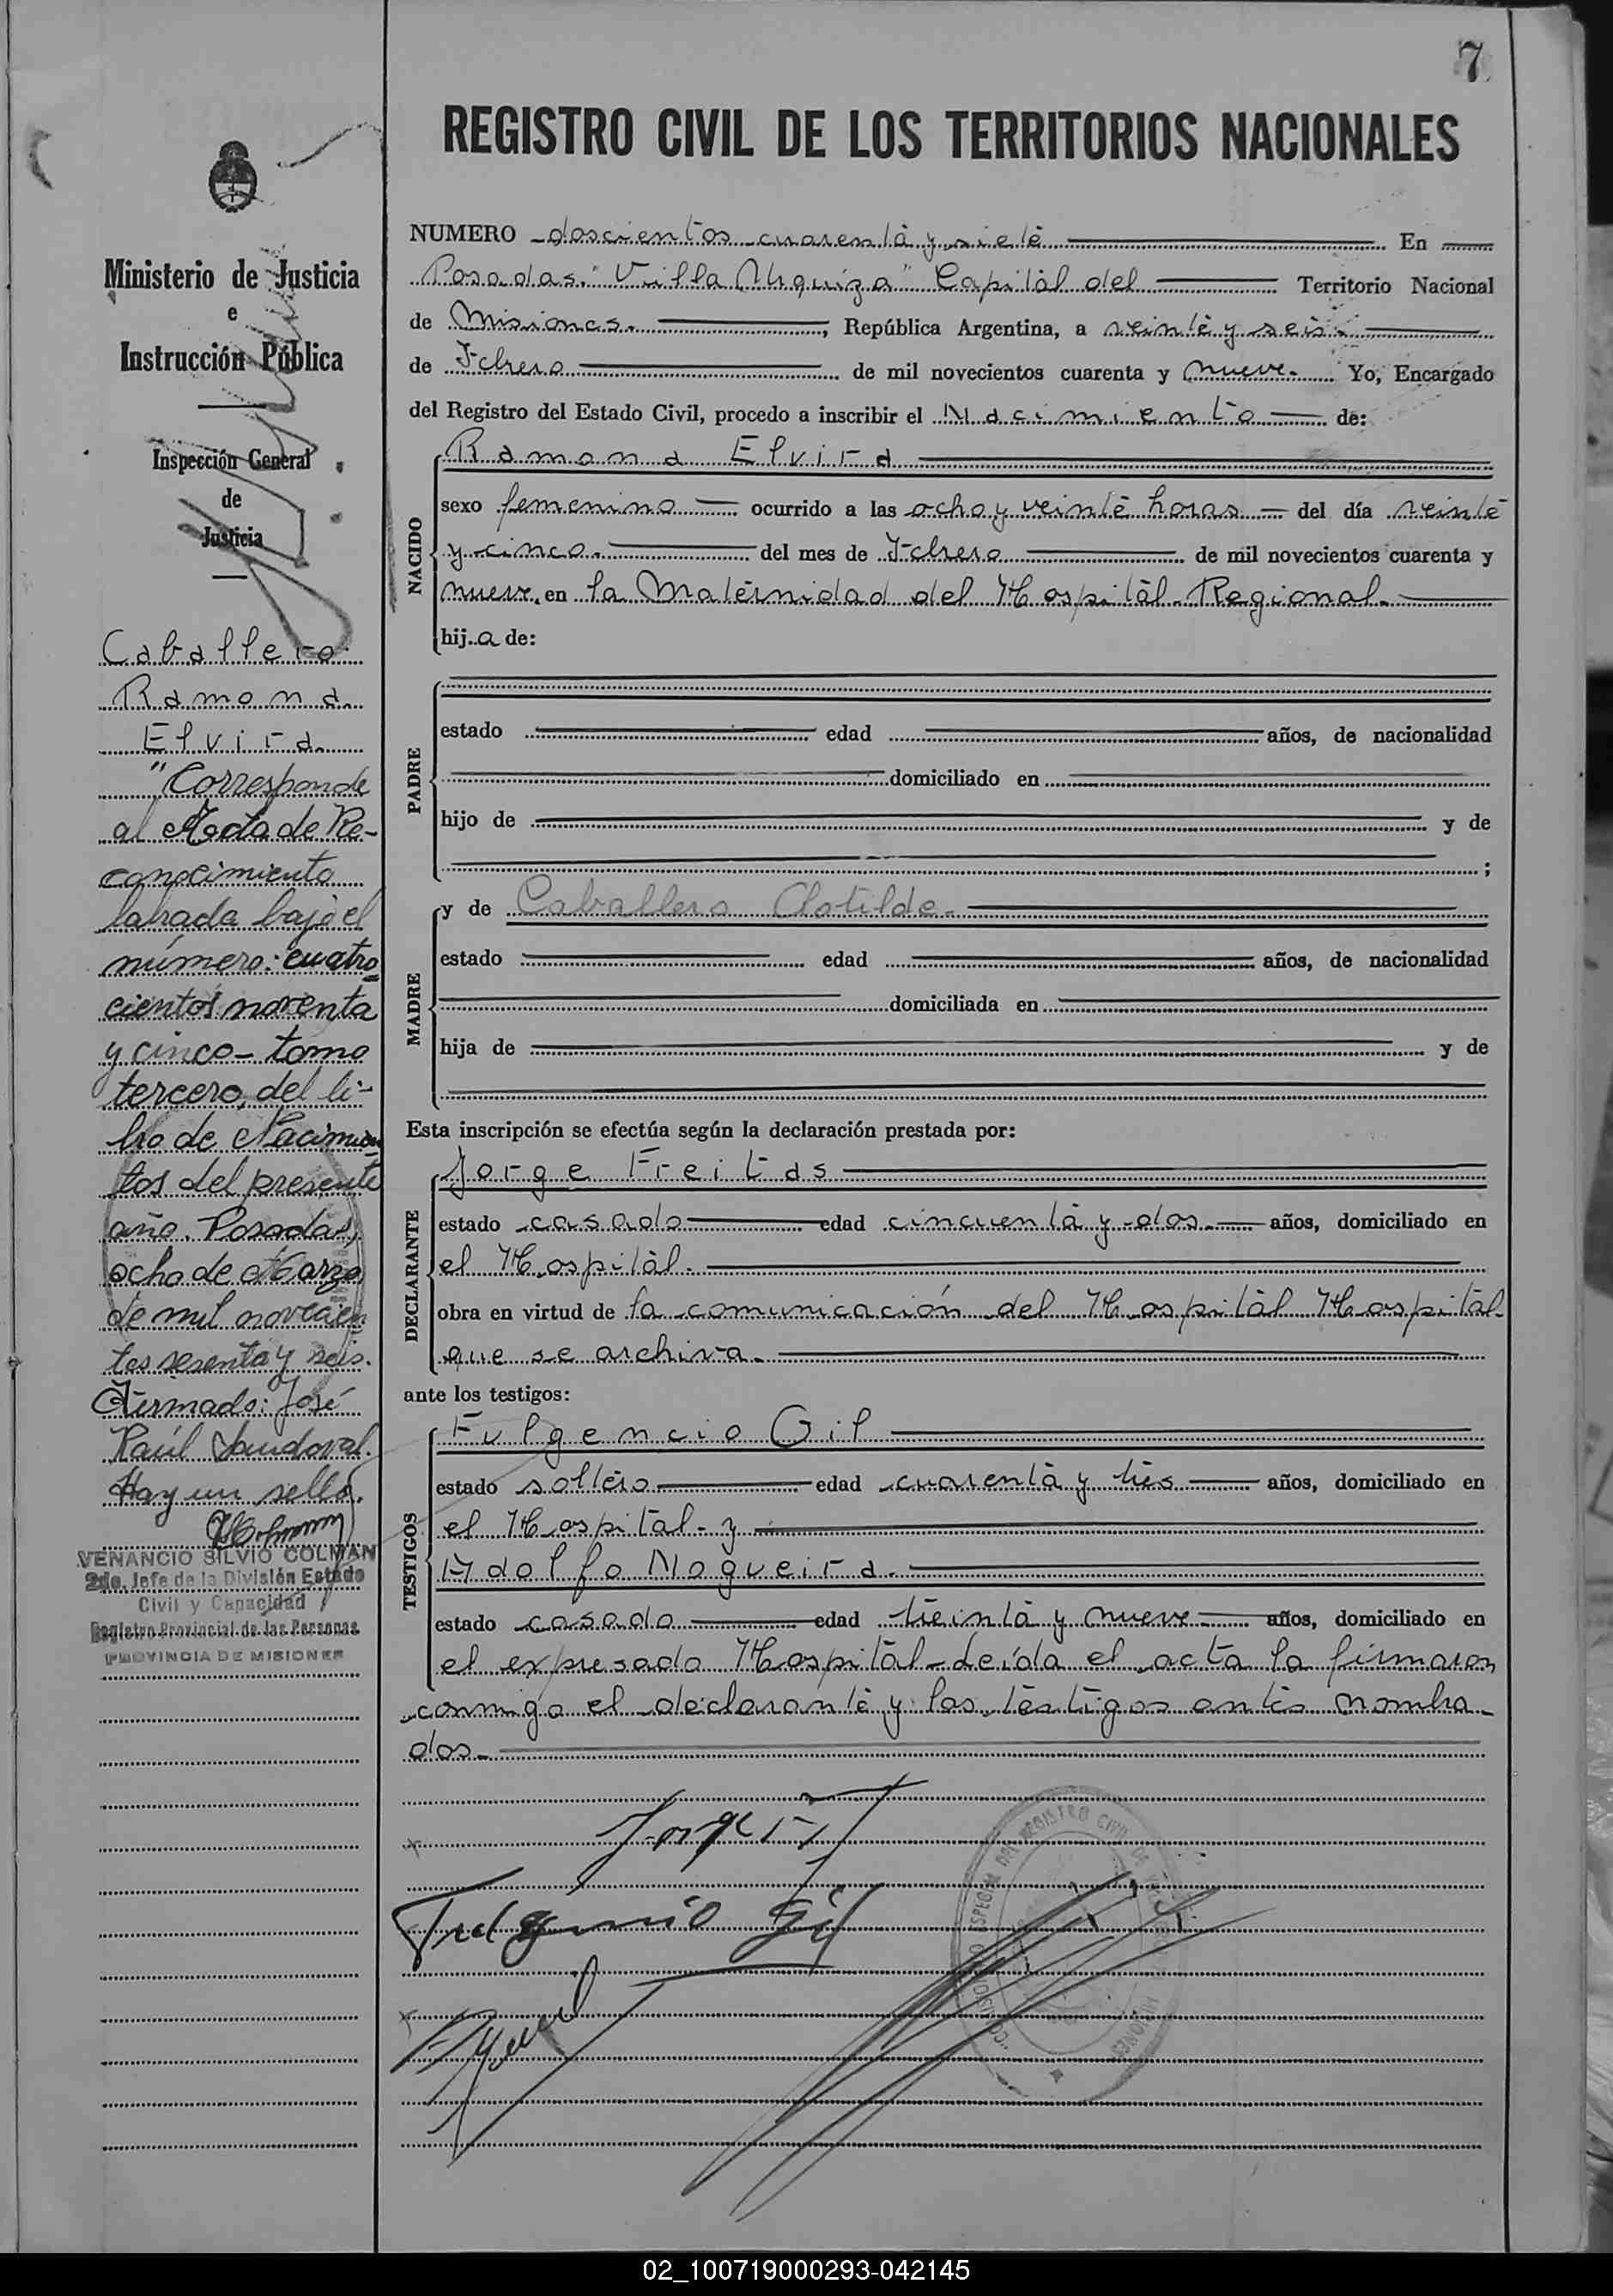 7
REGISTRO CIVIL DE LOS TERRITORIOS NACIONALES
Ministerio de Justicia
e
Instrucción Pública
Inspección General
de
Justicia
Caballero
Ramona
Elvira
"Corresponde
al Acta de Re-
conocimiento
labrada bajo el
número: cuatro
cientos noventa
y cinco - tomo
tercero, del li-
bro de Nacimien
tos del presente
año. Posadas,
ocho de Marzo
de mil novecien
tos sesenta y seis.
Firmado: José
Raúl Sandoval.
Hay un sello.
VENANCIO SILVIO COLMAN
2do. Jefe de la División Estado
Civil y Capacidad
Registro Provincial de las Personas
PROVINCIA DE MISIONES
NUMERO doscientos cuarenta y siete En
Posadas "Villa Urquiza" Capital del Territorio Nacional
de Misiones. , República Argentina, a veinte y seis
de Febrero de mil novecientos cuarenta y nueve. Yo, Encargado
del Registro del Estado Civil, procedo a inscribir el Nacimiento de:
NACIDO
Ramona Elvira
sexo femenino ocurrido a las ocho y veinte horas del día veinte
y cinco. del mes de Febrero de mil novecientos cuarenta y
nueve, en la Maternidad del Hospital Regional.
hij..a de:
PADRE
estado edad años, de nacionalidad
domiciliado en
hijo de y de
;
MADRE
y de Caballero Clotilde.
estado edad años, de nacionalidad
domiciliada en
hija de y de
Esta inscripción se efectúa según la declaración prestada por:
DECLARANTE
Jorge Freitas
estado casado edad cincuenta y dos. años, domiciliado en
el Hospital.
obra en virtud de la comunicación del Hospital Hospital
que se archiva.
ante los testigos:
TESTIGOS
Fulgencio Gil
estado soltero edad cuarenta y tres años, domiciliado en
el Hospital - y
Adolfo Nogueira.
estado casado edad treinta y nueve años, domiciliado en
el expresado Hospital - Leída el acta la firmaron
conmigo el declarante y los testigos antes nombra-
dos.
Jorge
Fulgencio Gil
02_100719000293-042145